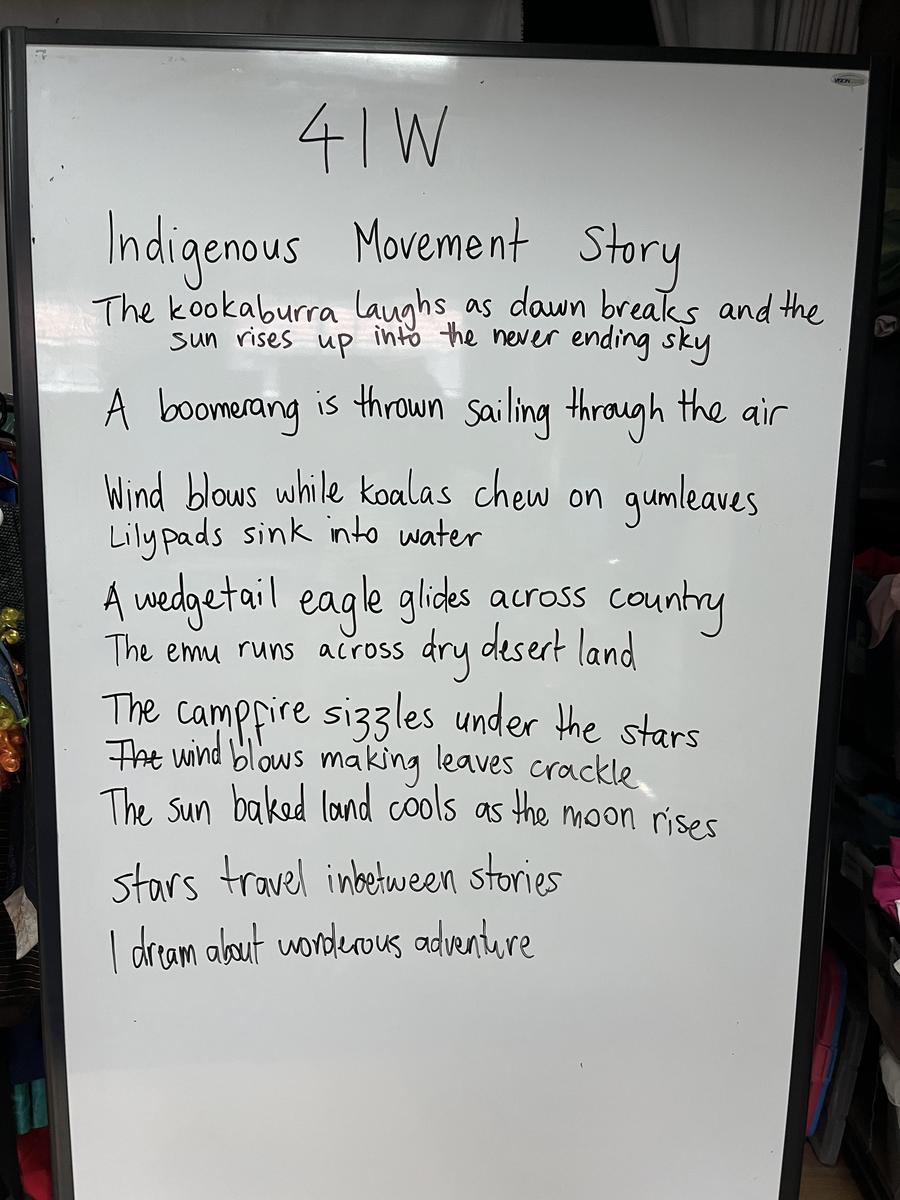 41W
Indigenous Movement Story
The kookaburra laughs as dawn breaks and the
sun rises up into the never ending sky
A boomerang is thrown sailing through the air
Wind blows while koalas chew on gumleaves
Lilypads sink into water
A wedgetail eagle glides across country
The emu runs across dry desert land
The campfire sizzles under the stars
The wind blows making leaves crackle
The sun baked land cools as the moon rises
stars travel inbetween stories
I dream about wonderous adventure